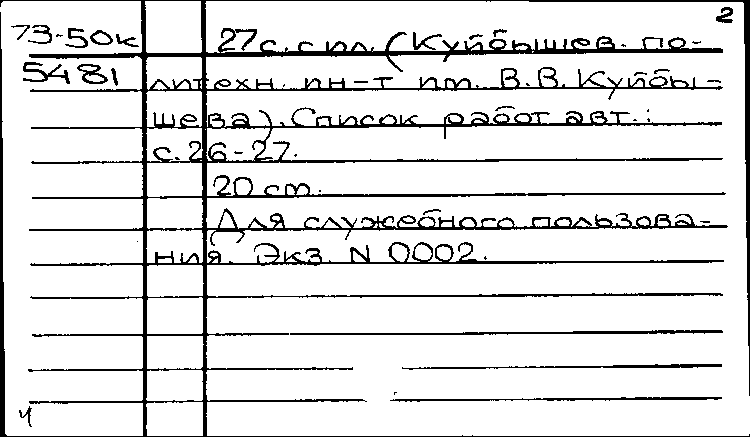 2
73-50к 27 с. с ил. (Куйбышев. по-
5481 литехн. ин-т им. В.В. Куйбы-
шева). Список работ авт.:
с. 26-27.
20 см.
Для служебного пользова-
ния. Экз. N 0002.